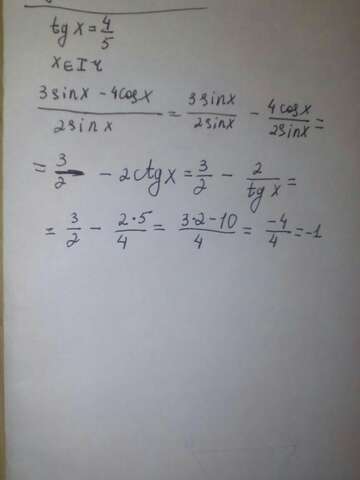 tg x = 4/5
x ∈ I ч
(3 sin x - 4 cos x)/(2 sin x) = 3 sin x/2 sin x - 4 cos x/2 sin x =
= 3/2 - 2 ctg x = 3/2 - 2/tg x =
= 3/2 - 2·5/4 = (3·2-10)/4 = -4/4 = -1